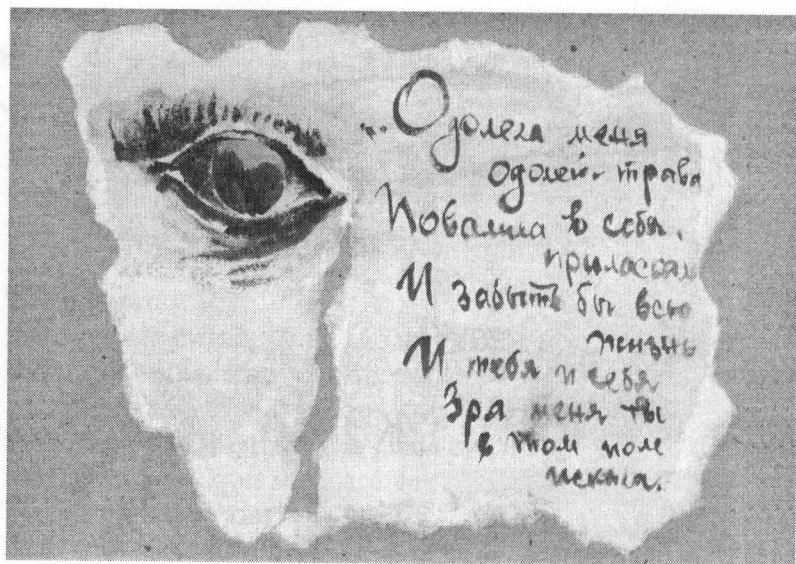 ...Одолела меня
одолей-трава
Повалила в себя,
приласкала
И забыть бы всю
жизнь
И тебя и себя
Зря меня ты
в том поле
искала.